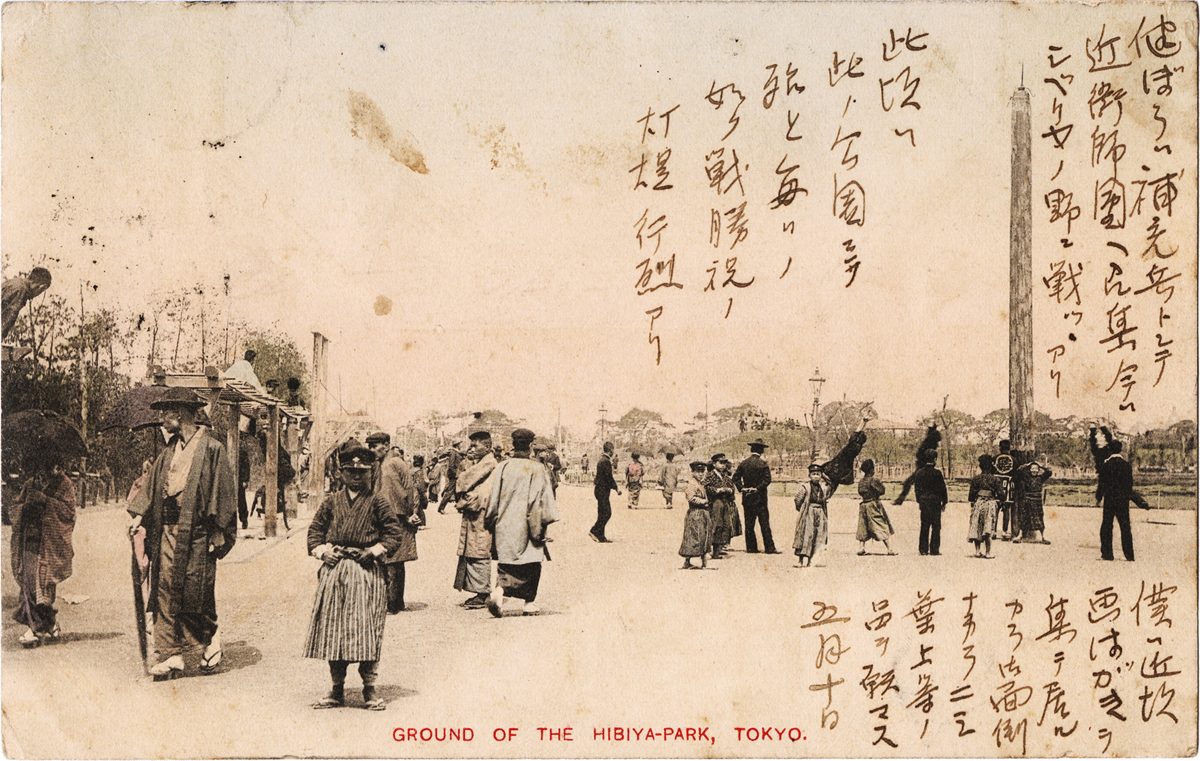 補充兵トシテ
近衛師團ヘ召集今ハ
シベリヤノ野ニ戦ツヽアリ
此頃ハ
此ノ公園ニテ
殆と毎日ノ
如ク戦勝祝ノ
灯提行烈アリ
僕ハ近頃
画はがきヲ
集テ居ル
カラ御面倒
ナガラ二三
葉上等ノ
品ヲ願マス
五月十日
GROUND OF THE HIBIYA-PARK, TOKYO.